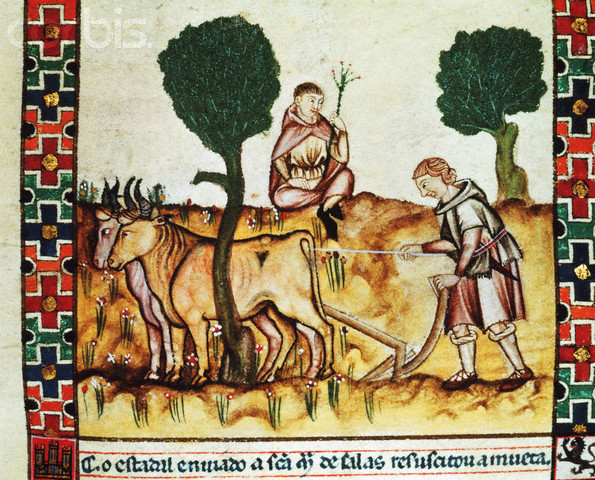 corbis.
C.o estadal enuiado a sc̃a m̃ de salas resuscitou a mueta.